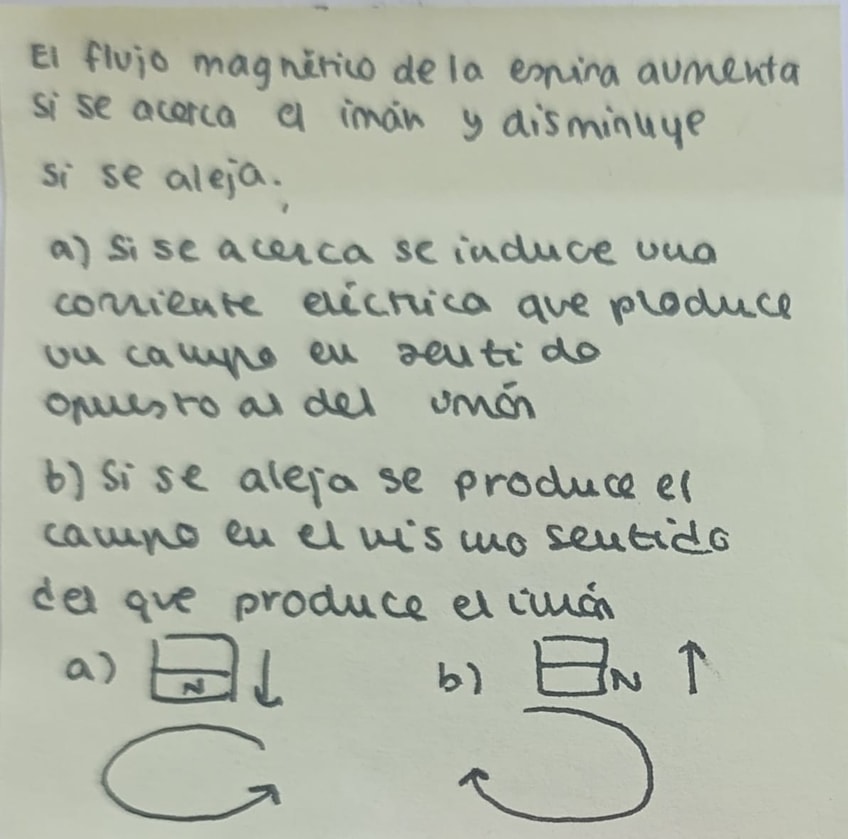 El flujo magnético de la espira aumenta
si se acerca el imán y disminuye
si se aleja.
a) Si se acerca se induce una
corriente eléctrica que produce
un campo en sentido
opuesto al del imán
b) Si se aleja se produce el
campo en el mismo sentido
del que produce el imán
a) N ↓ b) N ↑